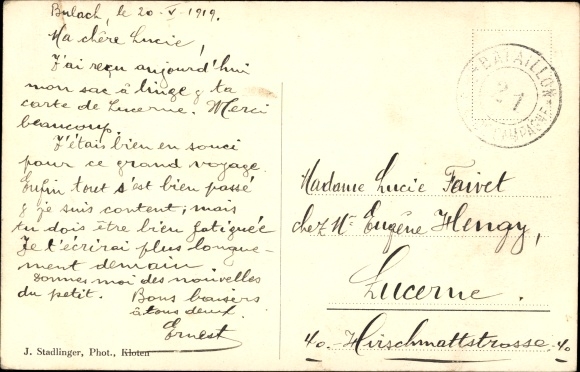 Bulach, le 20-V-1919.
Ma chère Lucie,
J'ai reçu aujourd'hui
mon sac à linge & ta
carte de Lucerne. Merci
beaucoup.
J'étais bien en souci
pour ce grand voyage.
Enfin tout s'est bien passé
& je suis content, mais
tu dois être bien fatiguée
Je t'écrirai plus longue-
ment demain
Donnes moi des nouvelles
du petit. Bons baisers
à tous deux.
Ernest
J. Stadlinger, Phot., Kloten
BATAILLON
21
CAMPAGNE
Madame Lucie Faivet
chez Mr Eugène Hengy,
Lucerne.
40.-Hirschmattstrosse.40